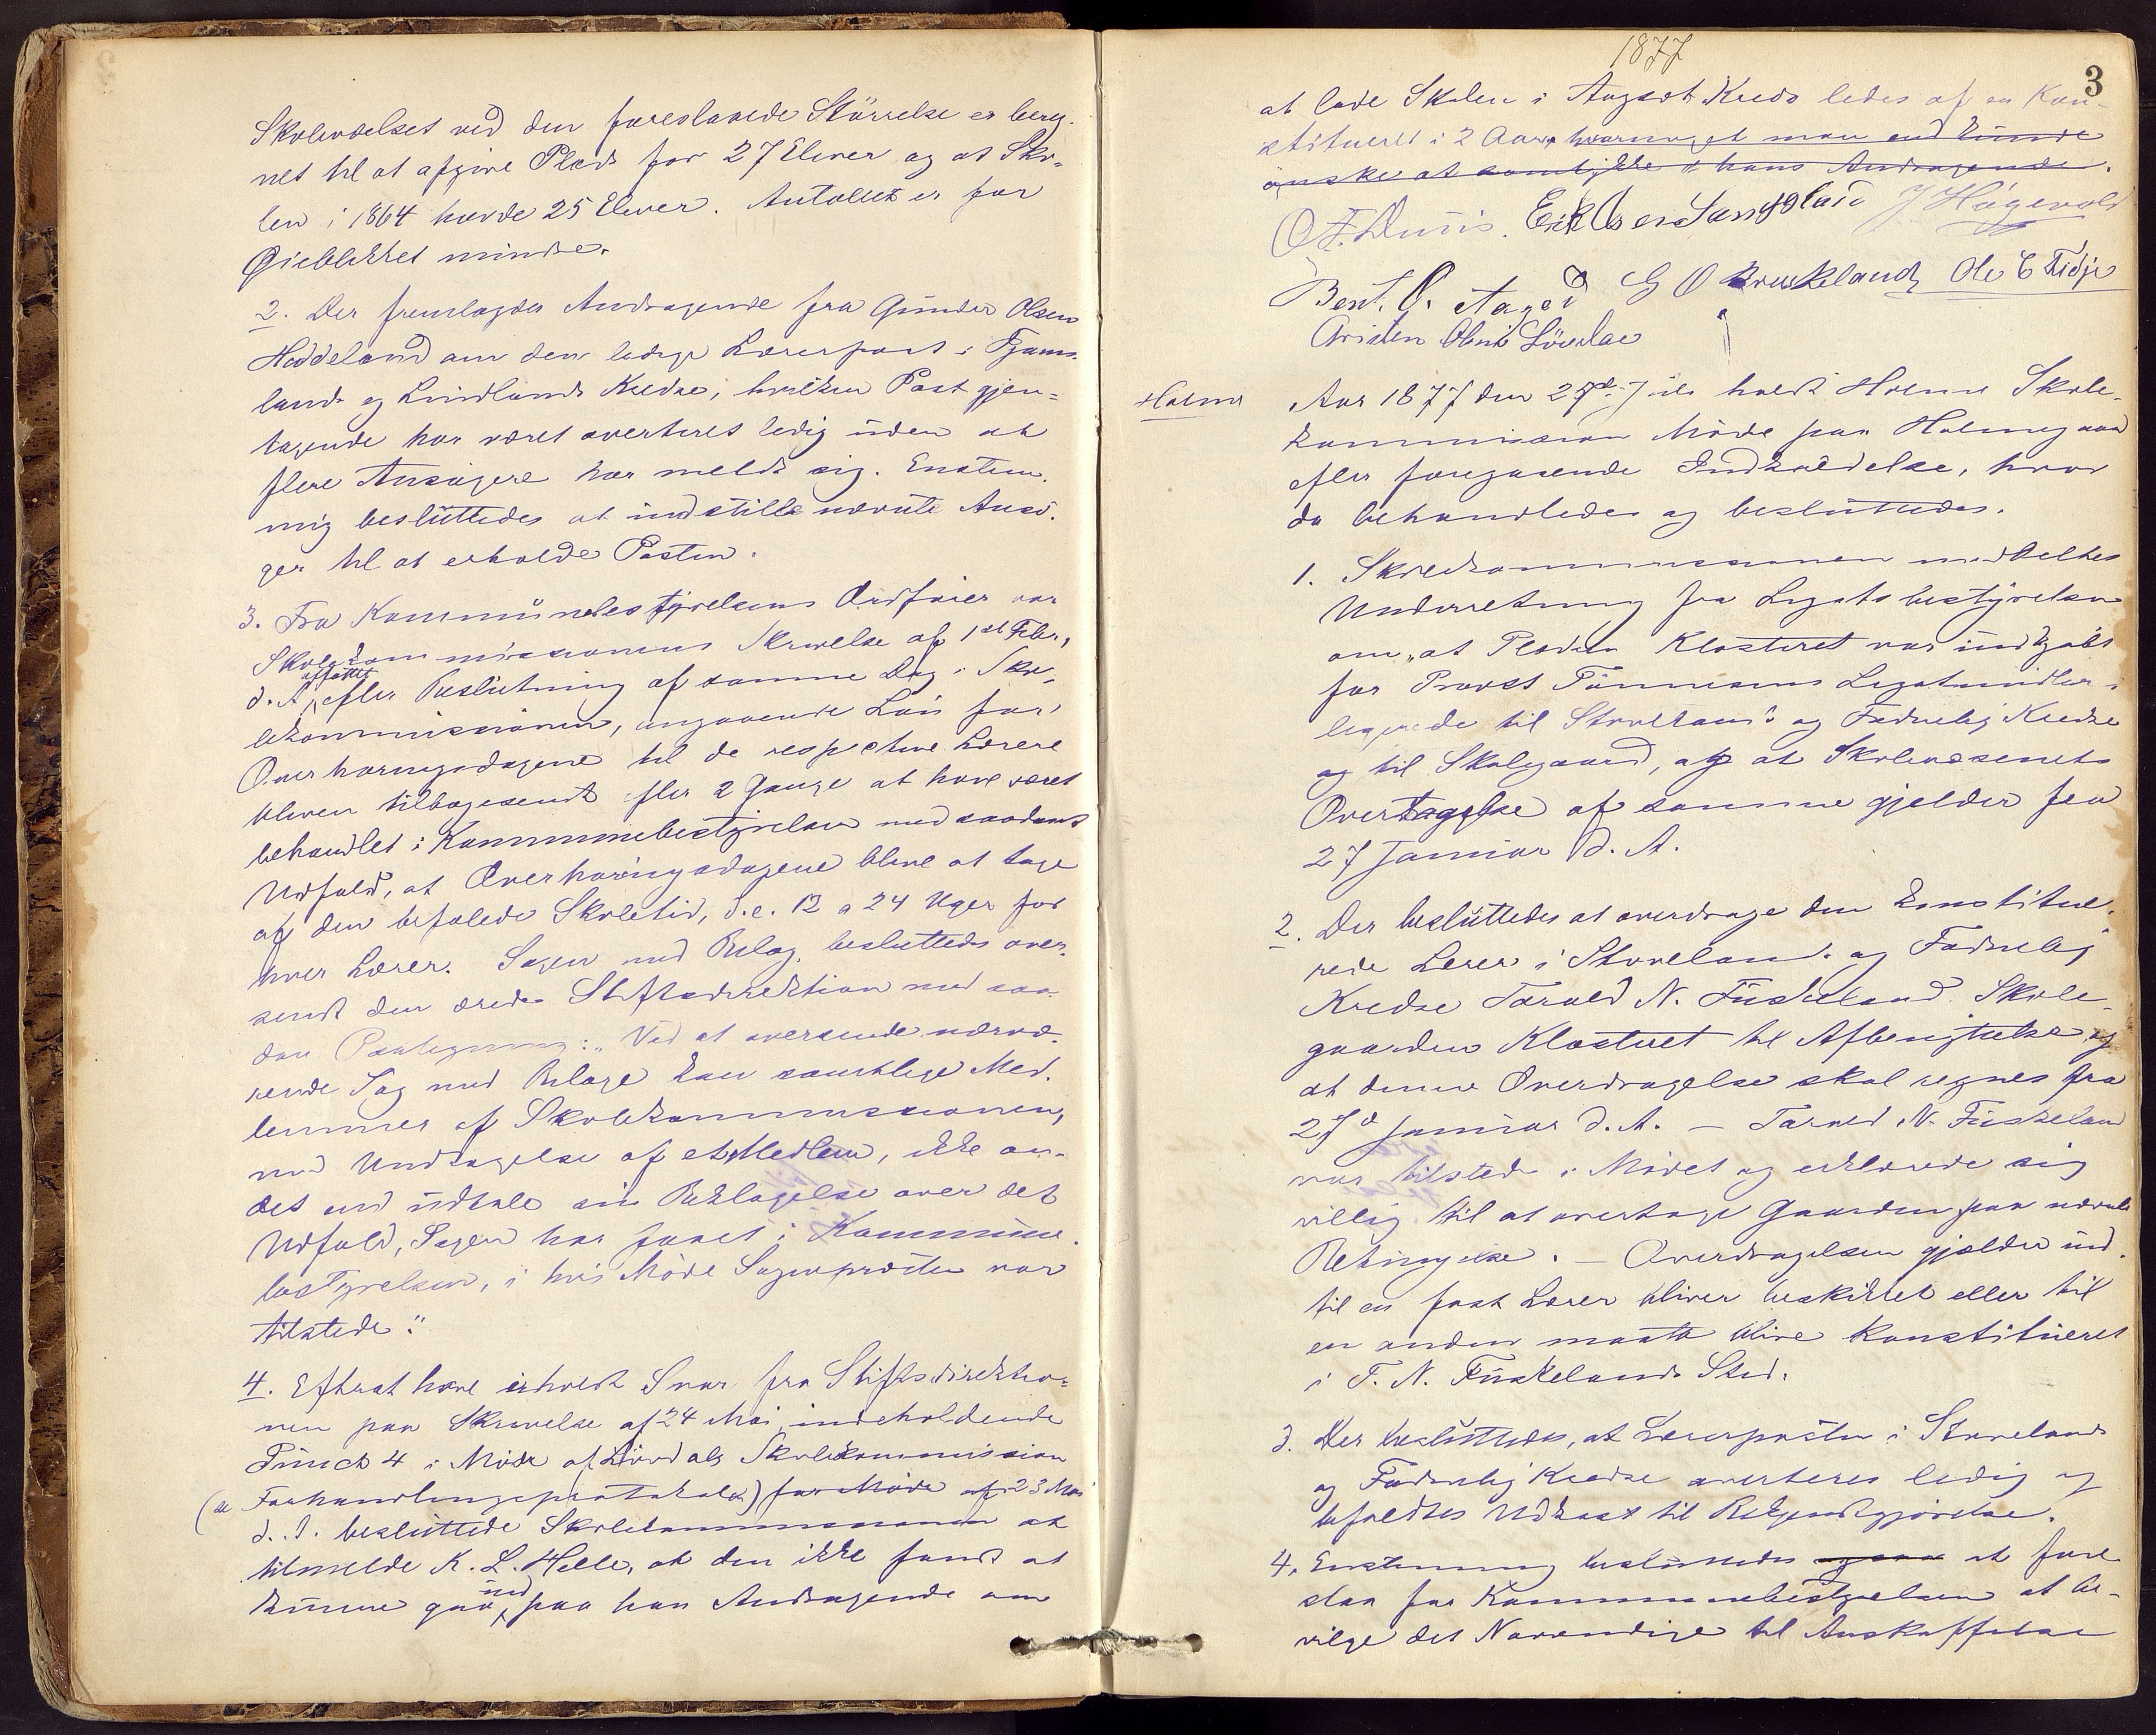 Skoleværelset ved den foreslaaede Störrelse er bereg-
net til at afgive Plads for 27 Elever og at Sko-
len i 1864 havde 25 Elever. Antallet er for
Øieblikket mindre.
2. Der fremlagdes Andragende fra Gunder Olsen
Haddeland om den ledige Lærerpost i Fjems-
lands og Lindlands Kredse, hvilken Post gjen-
tagende har været averteret ledig uden at
flere Ansøgere har meldt sig. Enstem-
mig besluttedes at indstille nævnte Ansö-
ger til at erholde Posten.
3. Fra Kommunebestyrelsens Ordförer var
Skolekommissionens Skrivelse af 1ste Febr.
d. A. affattet efter Beslutning af samme Dag i Sko-
lekommissionen, angaaende Lön for
Overhøringsdagene til de respektive Lærere
bleven tilbagesendt efter 2 Gange at have været
behandlet i Kommunebestyrelsen med saadant
Udfald, at Overhøringsdagene blive at tage
af den befalede Skoletid, d.e. 12 a 24 Uger for
hver Lærer. Sagen med Bilag besluttedes over-
sendt den ærede Stiftsdirektion med saa-
dan Paategning: "Ved at oversende nærvæ-
rende Sag med Bilage kan samtlige Med-
lemmer af Skolekommissionen,
med Undtagelse af et Medlem, ikke an-
det end udtale sin Beklagelse over det
Udfald, Sagen har faaet i Kommune-
bestyrelsen, i hvis Möde Sognepræsten var
tilstede."
4. Efterat have erholdt Svar fra Stiftsdirektio-
nen paa Skrivelse af 24 Mai, indeholdende
Punct 4 i Möde af Lövdals Skolekommission
(se Forhandlingsprotokol) for Möde af 23 Mai
d. A. besluttede Skolekommissionen at
tilmelde K. L. Helle, at den ikke fandt at
kunne gaa ind paa hans Andragende om
1877
3
at lade Skolen i Augedt Kreds ledes af en Kon-
stitueret i 2 Aar, hvorvel man end kunde
önske at samtykke i hans Andragende.
O F. Duus. Erik Olsen Langeland J Högevold
Bent. O. Aaged G O Bruskeland Ole C Tidje
Christen Olsen Lövdae
Holme
Aar 1877 den 25de Juli holdt Holme Skole-
kommission Möde paa Holmegaard
efter foregaaende Indkaldelse, hvor
da behandledes og besluttedes.
1. Skolekommissionen meddeltes
Underretning fra Legatsbestyrelsen
om, at Pladsen Klosteret var indkjöbt
for Provst Tönnesens Legatmidler
liggende til Stuvelands og Fodnebøj Kredse
og til Skolegaard, og at Skolevæsenets
Overtagelse af samme gjelder fra
27 Januar d. A.
2. Der besluttedes at overdrage den konstitue-
rede Lærer i Stuvelands og Fodnebøj
Kredse Tarald N. Fuskeland Skole-
gaarden Klosteret til Afbenyttelse, og
at denne Overdragelse skal regnes fra
27de Januar d. A. – Tarald N. Fuskeland
var tilstede i Mödet og erklærede sig
villig til at overtage Gaarden paa nævnte
Betingelse. – Overdragelsen gjælder ind-
til en fast Lærer bliver beskikket eller til
en anden maatte blive konstitueret
i T. N. Fuskelands Sted.
3. Der besluttedes, at Lærerposten i Stuvelands
og Fodnebøj Kredse averteres ledig og
befaldtes Udkast til Bekjendtgjörelse.
4. Enstemmig besluttedes ogsaa at fore-
slaa for Kommunebestyrelsen at be-
vilge det Nødvendige til Anskaffelse